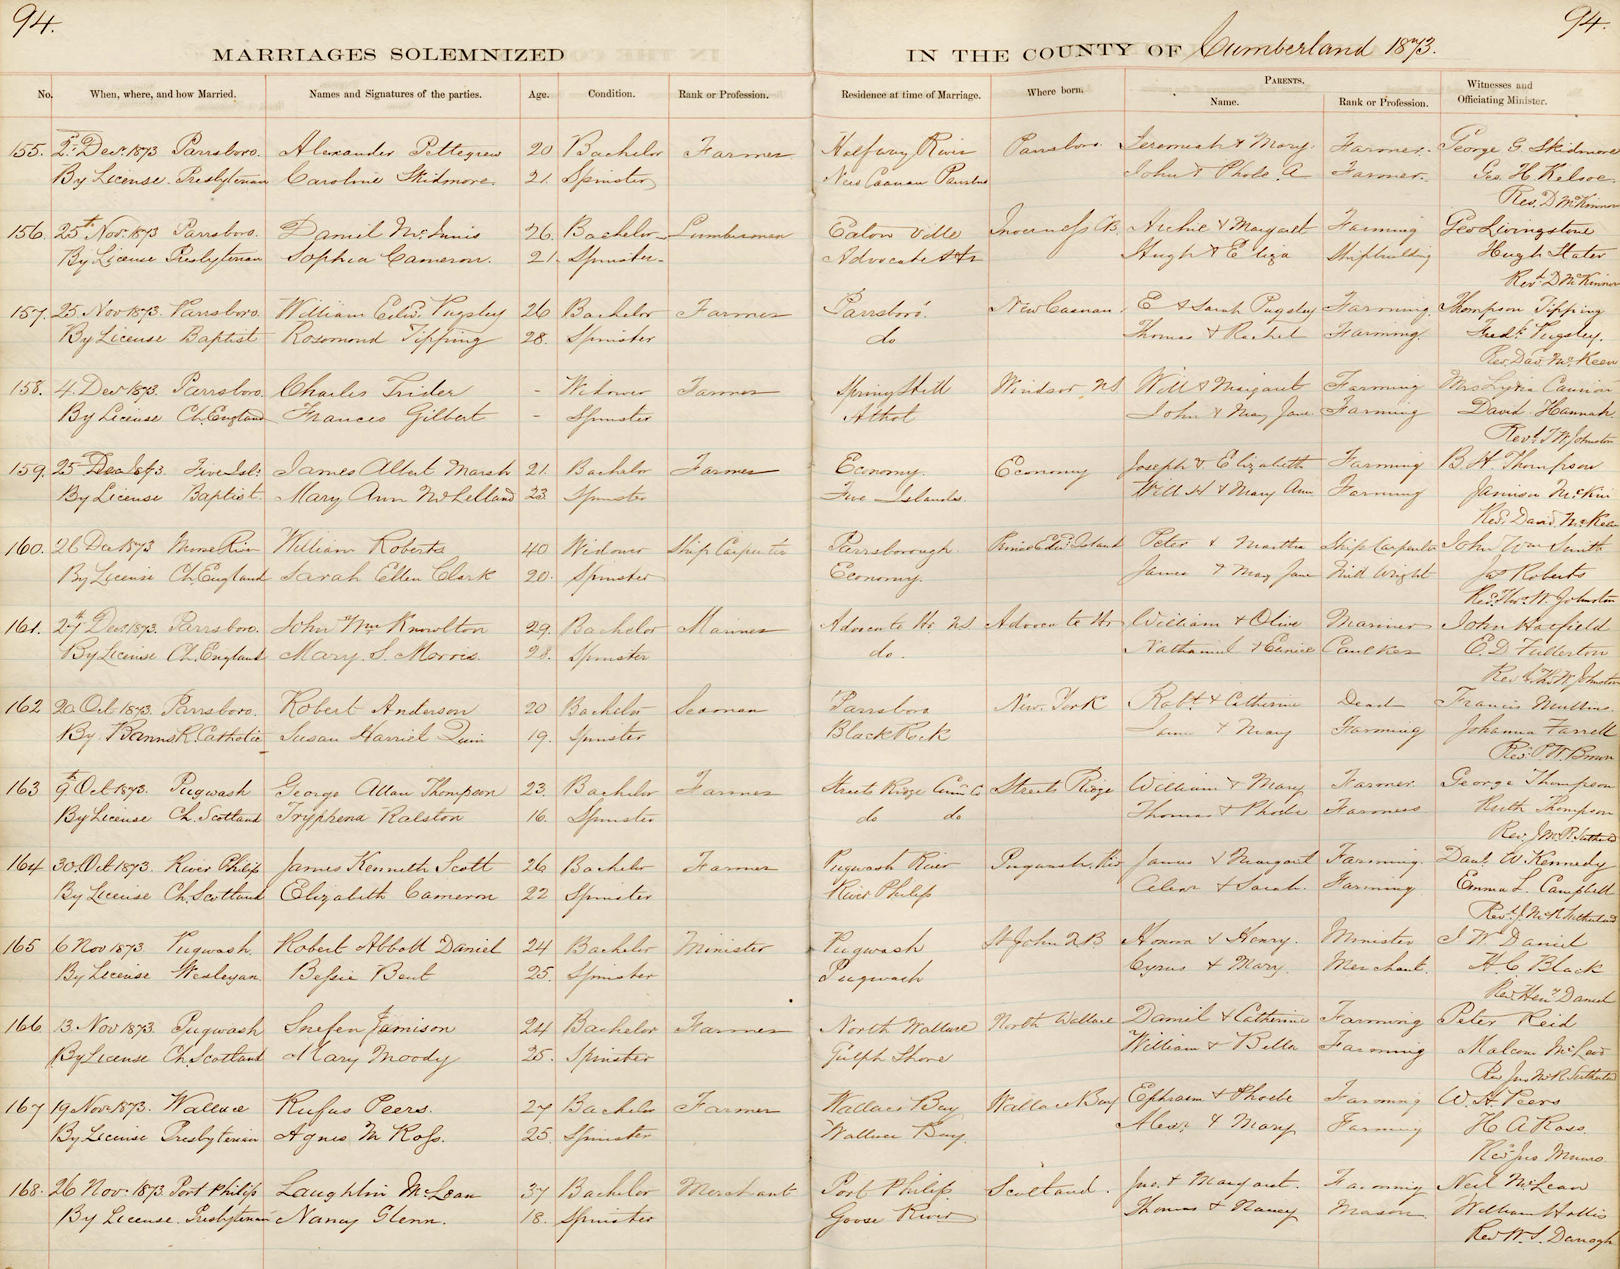 94.
94.
MARRIAGES SOLEMNIZED IN THE COUNTY OF Cumberland 1873.
No. When, where, and how Married. Names and Signatures of the parties. Age. Condition. Rank or Profession. Residence at time of Marriage. Where born. PARENTS. Name. Rank or Profession. Witnesses and Officiating Minister.
155. 2d Decr 1873 Parrsboro. Alexander Pettegrew 20 Bachelor Farmer Halfway River Parrsboro Jeremiah & Mary. Farmer. George G. Skidmore
By License. Presbyterian Caroline Skidmore. 21. Spinster New Canaan John & A Farmer. Geo. H. Kelsoe.
Rev. D McKinnon
156. 25th Novr 1873 Parrsboro. Daniel McInnis 26. Bachelor Lumberman Eaton Ville Inverness CB. Archie & Margaret Farming Geo Livingstone
By License Presbyterian Sophia Cameron. 21. Spinster. Advocate Hr Hugh & Eliza Shipbuilding Hugh Slater
Revd D McKinnon
157. 25 Nov 1873. Parrsboro. William Edwd. Pugsley 26 Bachelor Farmer Parrsboro. New Canaan E & Sarah Pugsley Farming. Thompson Tipping
By License Baptist Rosomond Tipping 28. Spinster do Thomas & Rachel Farming. Fredk. Pugsley.
Rev. Davd. McKeen
158. 4. Decr 1873. Parrsboro. Charles Trider - Widower Farmer Spring Hill Windsor NS Will & Margaret Farming Mrs Lydia
By License Ch. England Frances Gilbert - Spinster Athol John & Mary Jane Farming David Hannah.
Revd. T W Johnston
159. 25 Dec 1873. Five Isls. James Albert Marsh 21. Bachelor Farmer Economy. Economy Joseph & Elizabeth Farming B. H. Thompson
By License Baptist. Mary Ann McLelland 23 Spinster Five Islands. Will H & Mary Ann Farming
Revd. David McKeen
160. 26 Dec 1873 Moose River William Roberts 40 Widower Ship Carpenter Parrsborough. Prince Edwd Island Peter & Martha Ship Carpenter John Wm Smith
By License Ch. England Sarah Ellen Clark 20. Spinster Economy. James & Mary Jane Mill Wright Jas Roberts
Rev. Thos. W. Johnston
161. 27th Decr 1873. Parrsboro. John Wm Knowlton 29. Bachelor Mariner Advocate Hr. NS Advocate Hr William & Olive Mariner John Hatfield
By License Ch. England Mary. S. Morris. 28. Spinster do. Nathaniel & Eunice Caulker E. D Fullerton
Revd Th. W. Johnston
162 20. Oct 1873. Parrsboro. Robert Anderson 20 Bachelor Seaman Parrsboro New York Robt. & Catherine Dead Francis Mullins.
By Banns R. Catholic Susan Harriet Quin 19. Spinster Black Rock & Mary Farming Johanna Farrell
Rev. W. Brown
163 9th Oct 1873. Pugwash George Allan Thompson 23. Bachelor Farmer Streets Ridge Cumd. Co Streets Ridge William & Mary Farmer. George Thompson
By License Ch. Scotland Tryphena Ralston 16. Spinster do do Thomas & Phoebe Farmers Ruth Thompson
Rev. J McR. Sutherland
164 30. Oct 1873. River Philip. James Kenneth Scott 26 Bachelor Farmer Pugwash River Pugwash. Riv James & Margaret Farming. Danl. W. Kennedy
By License Ch. Scotland Elizabeth Cameron 22 Spinster River Philip Alexr & Sarah. Farming Emma L. Campbell
Revd. J. McR. Sutherland
165 6 Nov 1873. Pugwash. Robert Abbott Daniel 24 Bachelor Minister Pugwash St John N B Honora & Henry. Minister J. W. Daniel
By License Wesleyan Bessie Bent 25. Spinster Pugwash Cyrus & Mary. Merchant. H. C. Black
Rev. Heny. Daniel
166 13. Nov 1873. Pugwash Jamison 24 Bachelor Farmer North Wallace North Wallace Daniel & Catherine Farming Peter Reid
By License Ch. Scotland Mary Moody 25. Spinster Gulph Shore William & Bella Farming Malcom McLeod
Rev Jno McR Sutherland
167 19 Novr 1873. Wallace Rufus Peers. 27 Bachelor Farmer Wallace Bay Wallace Bay Ephraim & Phoebe Farming W. H. Peers
By License Presbyterian Agnes M Ross. 25. Spinster Wallace Bay. Alexr. & Mary Farming H A Ross.
Revd Jno Munro
168. 26 Novr. 1873. Port Philip Laughlin McLean 37 Bachelor Merchant Port Philip. Scotland. Jno. & Margaret. Farming Neil McLean
By License. Presbyterian Nancy Glenn. 18. Spinster Goose River Thomas & Nancy Mason William Hollis
Revd W. S. Darragh